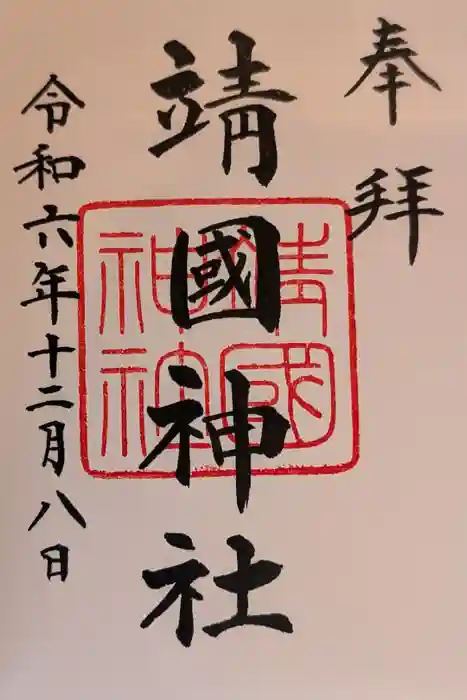 奉拝
靖國神社
靖國神社
令和六年十二月八日